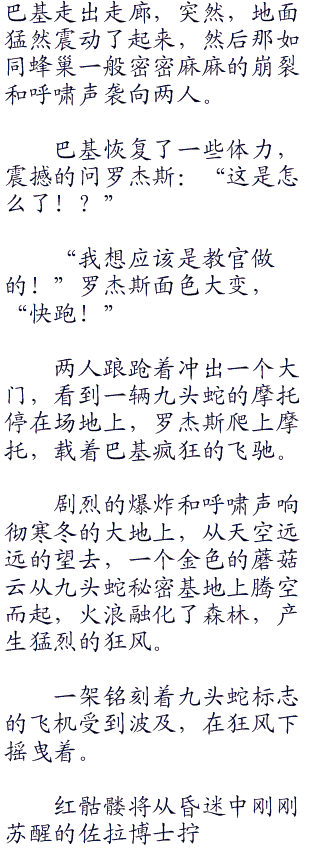 巴基走出走廊，突然，地面
猛然震动了起来，然后那如
同蜂巢一般密密麻麻的崩裂
和呼啸声袭向两人。
巴基恢复了一些体力，
震撼的问罗杰斯：“这是怎
么了！？”
“我想应该是教官做
的！”罗杰斯面色大变，
“快跑！”
两人踉跄着冲出一个大
门，看到一辆九头蛇的摩托
停在场地上，罗杰斯爬上摩
托，载着巴基疯狂的飞驰。
剧烈的爆炸和呼啸声响
彻寒冬的大地上，从天空远
远的望去，一个金色的蘑菇
云从九头蛇秘密基地上腾空
而起，火浪融化了森林，产
生猛烈的狂风。
一架铭刻着九头蛇标志
的飞机受到波及，在狂风下
摇曳着。
红骷髅将从昏迷中刚刚
苏醒的佐拉博士拧